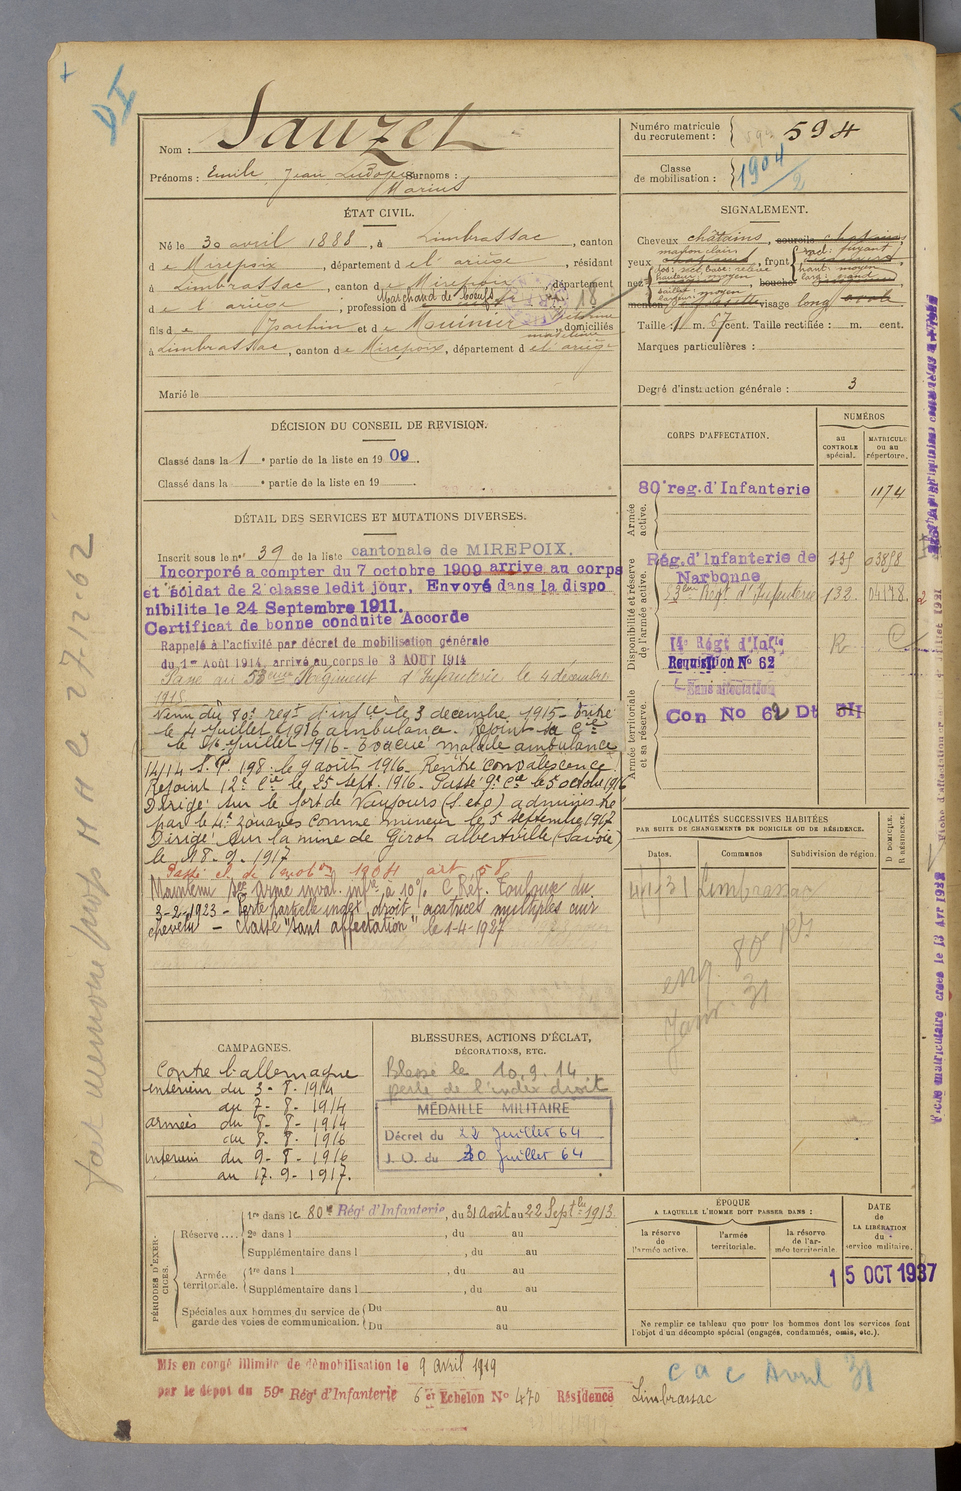 Nom : Sauzet
Prénoms : Emile Jean Surnoms :
Marius
Numéro matricule du recrutement : 594
Classe de mobilisation : 1904/2
ÉTAT CIVIL.
Né le 30 avril 1888, à Limbrassac, canton
de Mirepoix, département de l'ariège, résidant
à Limbrassac, canton de Mirepoix, département
de l'ariège, profession d Marchand de boeufs
fils de et de Mounier Victorine, domiciliés
madeleine
à Limbrassac, canton de Mirepoix, département de l'ariège
Marié le
SIGNALEMENT.
Cheveux châtains, sourcils châtains,
yeux marron clairs, front incl: fuyant
haut: moyen
larg: grand
nez dos: rect. base: relevé
hauteur: moyen, bouche
saillie: moyen
largeur: moyen
menton visage long ovale
Taille : 1 m. 67 cent. Taille rectifiée : m. cent.
Marques particulières :
Degré d'instruction générale : 3
DÉCISION DU CONSEIL DE REVISION.
Classé dans la 1e partie de la liste en 1909.
Classé dans la e partie de la liste en 19
CORPS D'AFFECTATION.
NUMÉROS
au CONTROLE spécial.
MATRICULE ou au répertoire.
Armée active.
80e reg. d'Infanterie 1174
Disponibilité et réserve de l'armée active.
Rég. d'Infanterie de Narbonne 135 03858
53eme Régt d'Infanterie 132 04178
14e Régt d'Infie R
Requisition No 62
Sans affectation
Armée territoriale et sa réserve.
Con No 62 Dt
DÉTAIL DES SERVICES ET MUTATIONS DIVERSES.
Inscrit sous le no 39 de la liste cantonale de MIREPOIX.
Incorporé a compter du 7 octobre 1909 arrive au corps
et soldat de 2e classe ledit jour, Envoyé dans la dispo
nibilite le 24 Septembre 1911.
Certificat de bonne conduite Accorde
Rappelé à l'activité par décret de mobilisation générale
du 1er Août 1914, arrivé au corps le 3 AOUT 1914
Passé au 53eme Régiment d'Infanterie le 4 décembre
1915
Venu du 80e regt d'infie le 3 decembre 1915 - Entré
le 4 juillet 1916 ambulance. Rejoint sa Cie
le 16 juillet 1916 - Evacué malade ambulance
14/14 S.P. 198 le 9 août 1916. Rentré convalescence
Rejoint 12e Cie le 25 sept. 1916. Passé 9e Cie le 5 octobre 1916
Dirigé sur le fort de Vaujours (S. et O) administré
par le 4e zouaves comme mineur le 5 septembre 1917
Dirigé sur la mine de Giroh albertville (Savoie)
le 18-9-1917
Passé cl. de mobon 1904 art 58
Maintenu Ser. armé inval. infre à 10%. C Réf. Toulouse du
3-2-1923 - Perte partielle index droit cicatrices multiples cuir
chevelu - Classé "sans affectation" le 1-4-1927
LOCALITÉS SUCCESSIVES HABITÉES
PAR SUITE DE CHANGEMENTS DE DOMICILE OU DE RÉSIDENCE.
Dates. Communes Subdivision de région.
D DOMICILE.
R RÉSIDENCE.
Limbrassac
eng. 80e RI
Janv. 31
CAMPAGNES.
Contre l'allemagne
interieur du 3-8-1914
au 7-8-1914
armées du 8-8-1914
au 8-8-1916
interieur du 9-8-1916
au 17-9-1917.
BLESSURES, ACTIONS D'ÉCLAT,
DÉCORATIONS, ETC.
Blessé le 10.9.14
perte de l'index droit
MÉDAILLE MILITAIRE
Décret du 22 Juillet 64
J. O. du 30 Juillet 64
PÉRIODES D'EXERCICES.
Réserve .... 1re dans le 80e Régt d'Infanterie, du 31 Août au 22 Septbre 1913
2e dans l , du au
Supplémentaire dans l , du au
Armée territoriale. 1re dans l , du au
Supplémentaire dans l , du au
Spéciales aux hommes du service de garde des voies de communication. Du au
Du au
ÉPOQUE
A LAQUELLE L'HOMME DOIT PASSER DANS :
la réserve de l'armée active.
l'armée territoriale.
la réserve de l'armée territoriale.
DATE de LA LIBÉRATION du service militaire.
15 OCT 1937
Ne remplir ce tableau que pour les hommes dont les services font
l'objet d'un décompte spécial (engagés, condamnés, omis, etc.).
Mis en congé illimité de démobilisation le 9 avril 1919
par le dépot du 59e Régt d'Infanterie 6e Echelon No 470 Résidence Limbrassac
c a c Avril 31
Fiche matriculaire créée le 13 Avr 1938